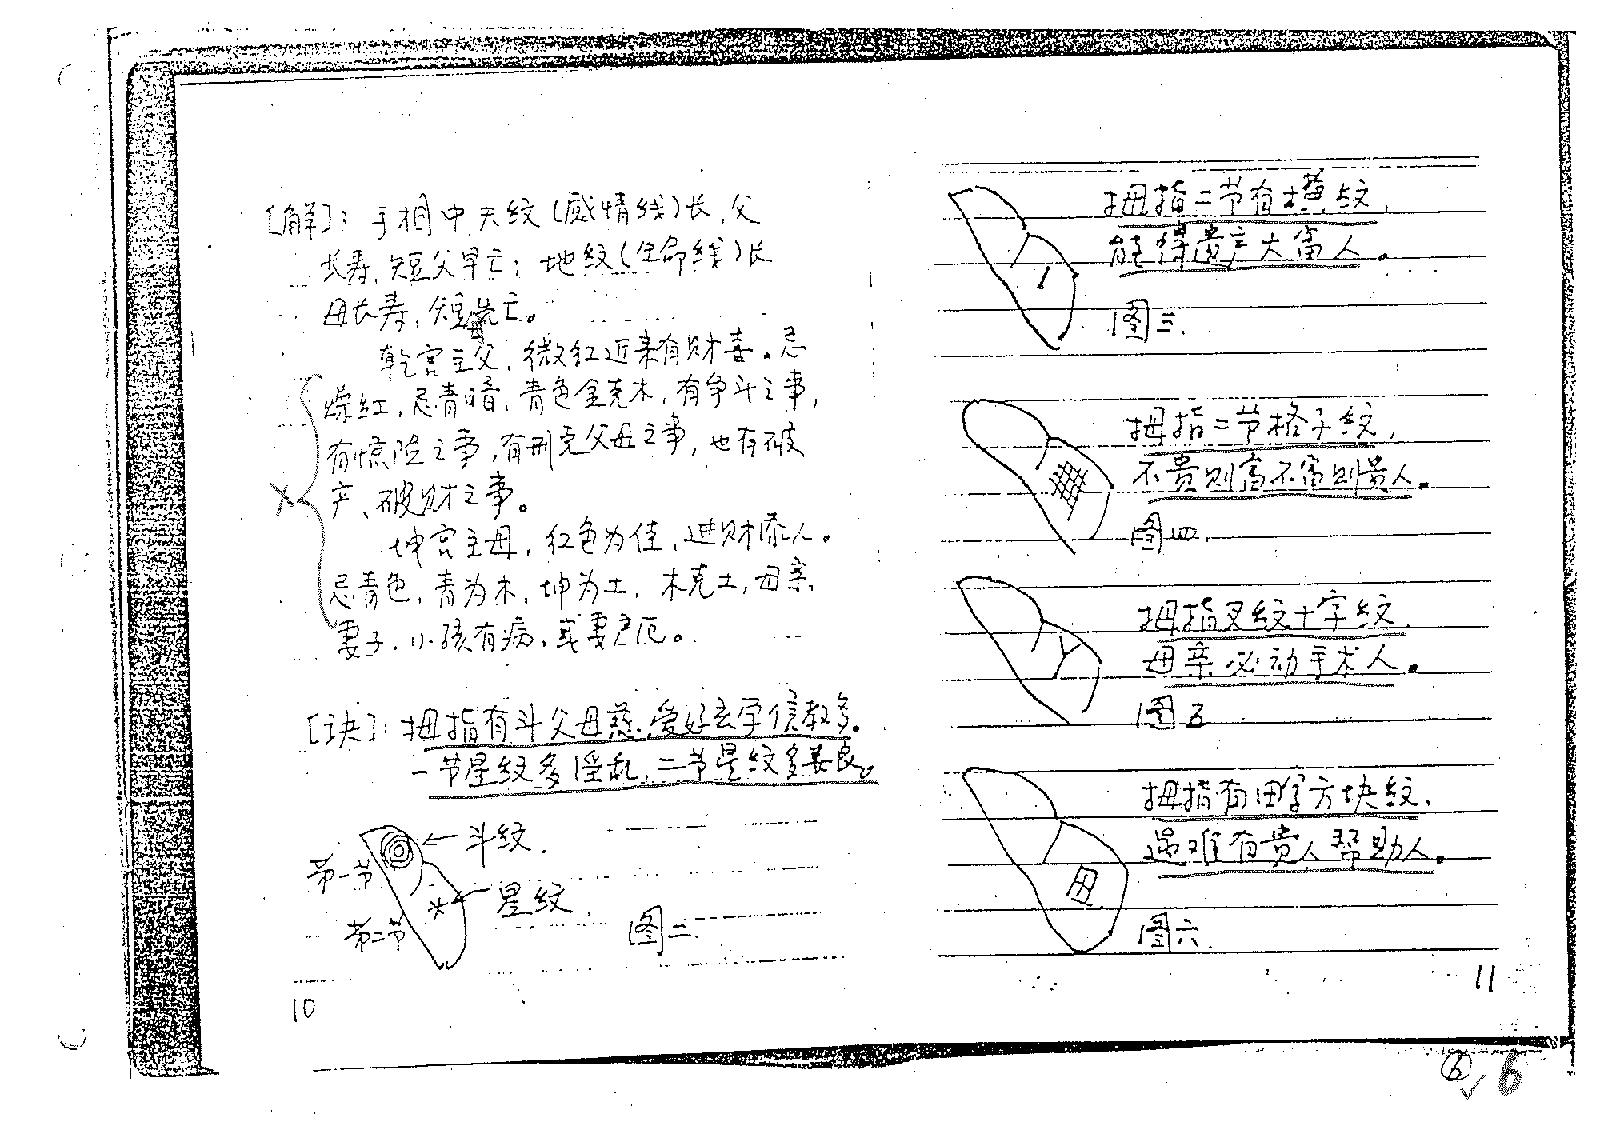 [解]：手相中天纹(感情线)长，父
长寿，短父早亡；地纹(生命线)长
母长寿，短先亡。
乾宫主父，微红近来有财喜。忌
红，忌青暗，青色金克木，有争斗之事，
有惊险之事，有刑克父母之事，也有破
产、破财之事。
坤宫主母，红色为佳，进财添人。
忌青色，青为木，坤为土，木克土，母亲，
妻子，小孩有病，或妻产厄。
[诀]：拇指有斗父母慈，爱好玄学信教多。
一节星纹多淫乱，二节星纹多妻良。
斗纹
第一节
星纹
第二节
图二
10
拇指二节有横纹，
能得遗产大富人。
图三
拇指二节格子纹，
不贵则富不富则贵人。
图四
拇指叉纹十字纹，
母亲必动手术人。
图五
拇指有田字方块纹，
遇难有贵人帮助人。
田
图六
11
6
6